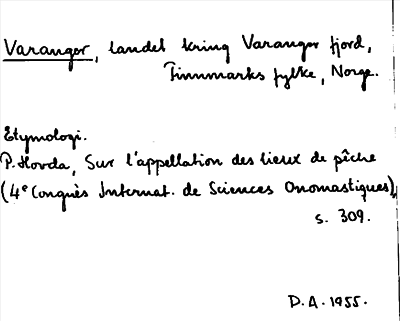 Varanger, landet kring Varanger fjord,
Finnmarks fylke, Norge.
Etymologi.
P. Hovda, Sur l'appellation des lieux de pêche
(4e Congrès Internat. de Sciences Onomastiques),
s. 309.
D.A. 1955.